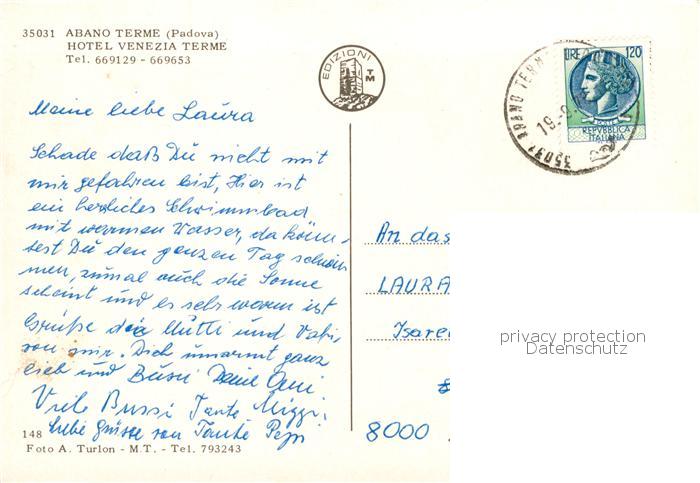 35031 ABANO TERME (Padova)
HOTEL VENEZIA TERME
Tel. 669129 - 669653
EDIZIONI
TM
LIRE 120
POSTE
REPVBBLICA
ITALIANA
35031 ABANO TERME
19.-9.
Meine liebe Laura
Schade daß Du nicht mit
mir gefahren bist, Hier ist
ein herrliches Schwimmbad
mit warmen Wasser, da könn-
test Du den ganzen Tag schwim
men, zumal auch die Sonne
scheint und es sehr warm ist
Grüße die Mutti und Vati,
von mir. Dich umarmt ganz
lieb und Bussi Deine Omi
Viele Bussi Tante Mizzi
Liebe Grüsse von Tante Pepi
An das
LAURA
Isare
8000
privacy protection
Datenschutz
148
Foto A. Turlon - M.T. - Tel. 793243